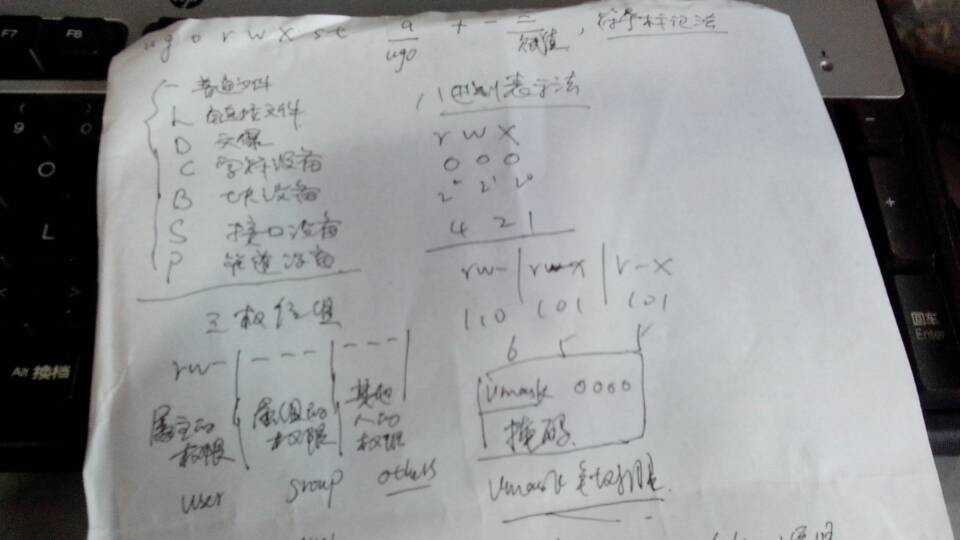 u g o r w x s t a/ugo + - = 赋值, 符号标记法
- 普通文件
L 链接文件
D 目录
C 字符设备
B 块设备
S 接口设备
P 管道设备
三权位组
rw- | - - - | - - -
属主的权限
属组的权限
其他人的权限
user group others
8进制表示法
r w x
0 0 0
2² 2¹ 2⁰
4 2 1
rw- | r-x | r-x
110 101 101
6 5 5
umask 0000
掩码
umask 权限
F7
F8
9
0
O
L
Alt 换档
回车
Enter